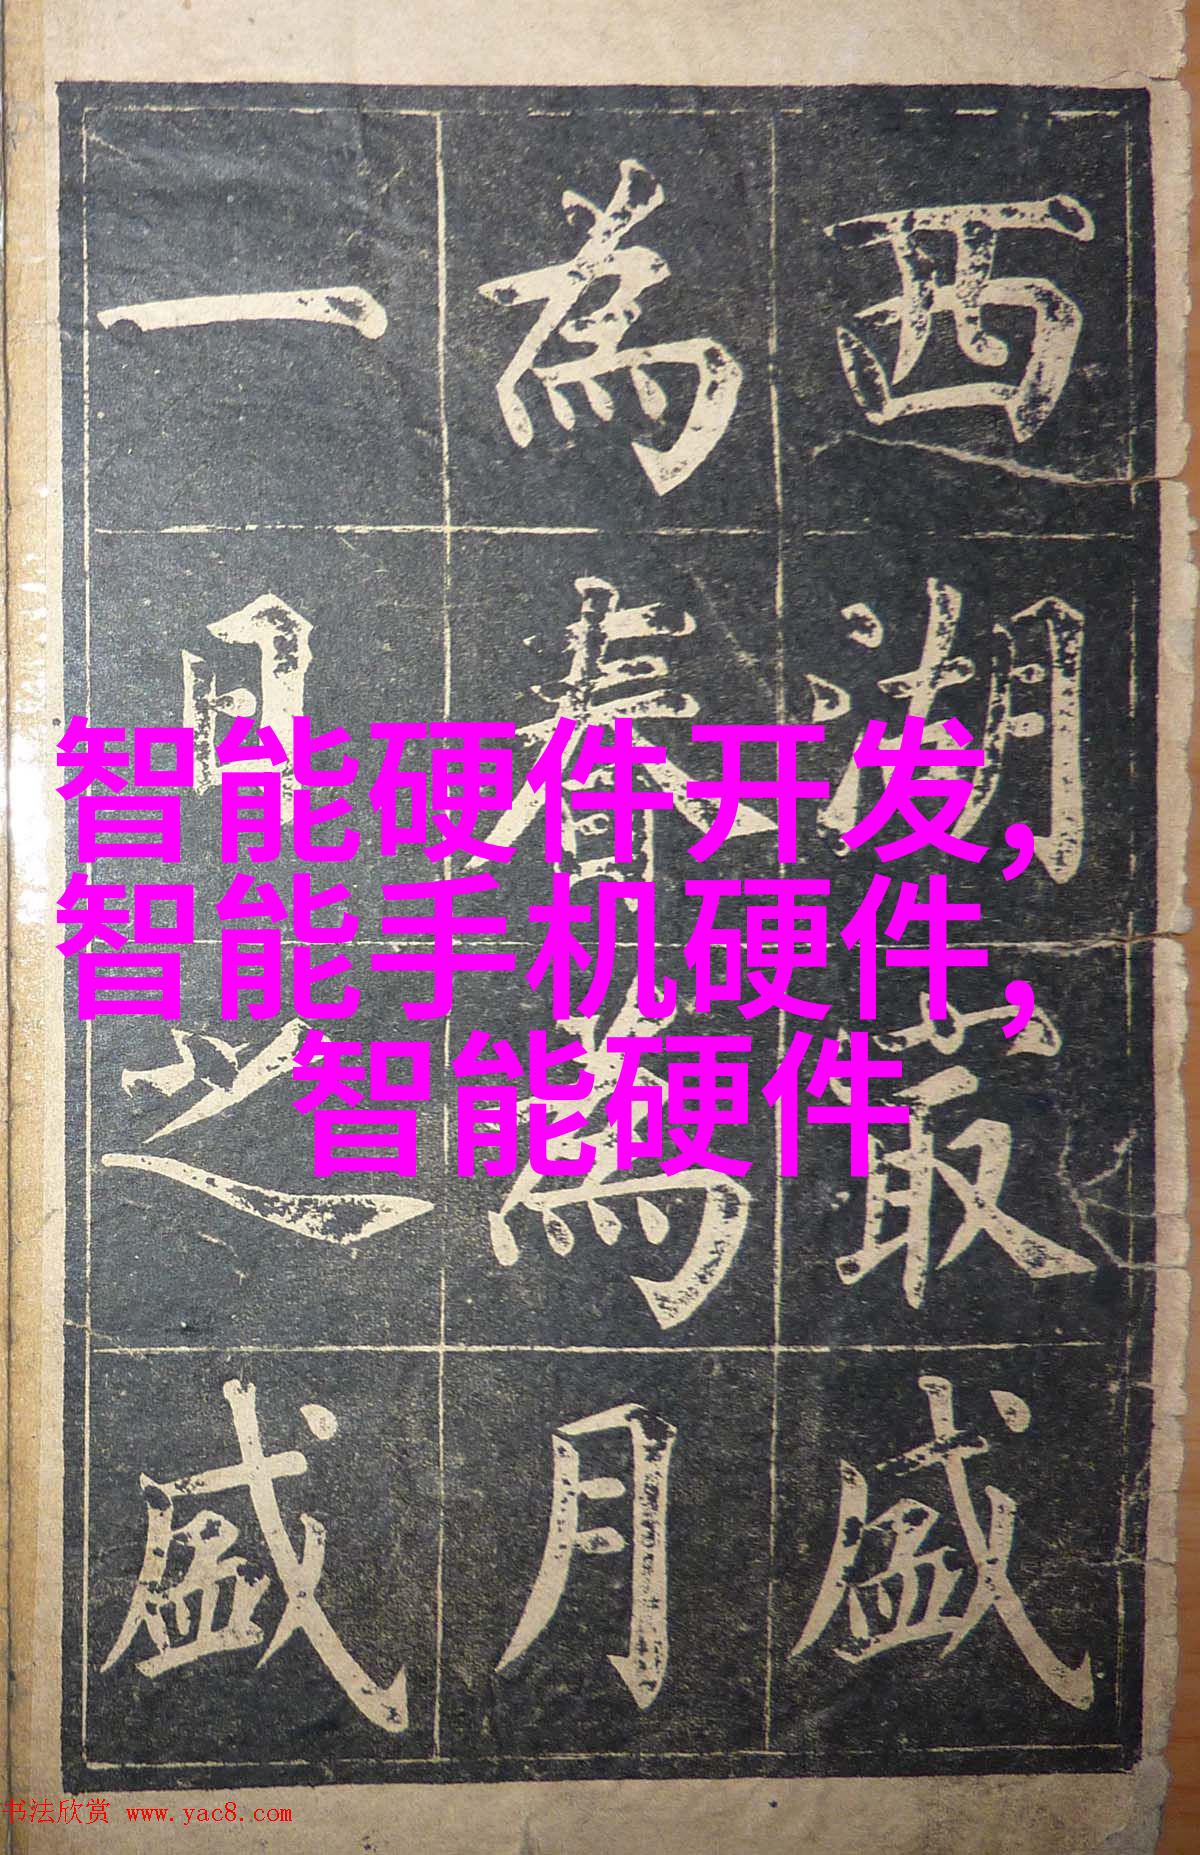 西湖最盛
為春為月
一日之盛
智能硬件开发,
智能手机硬件,
智能硬件
书法欣赏 www.yac8.com